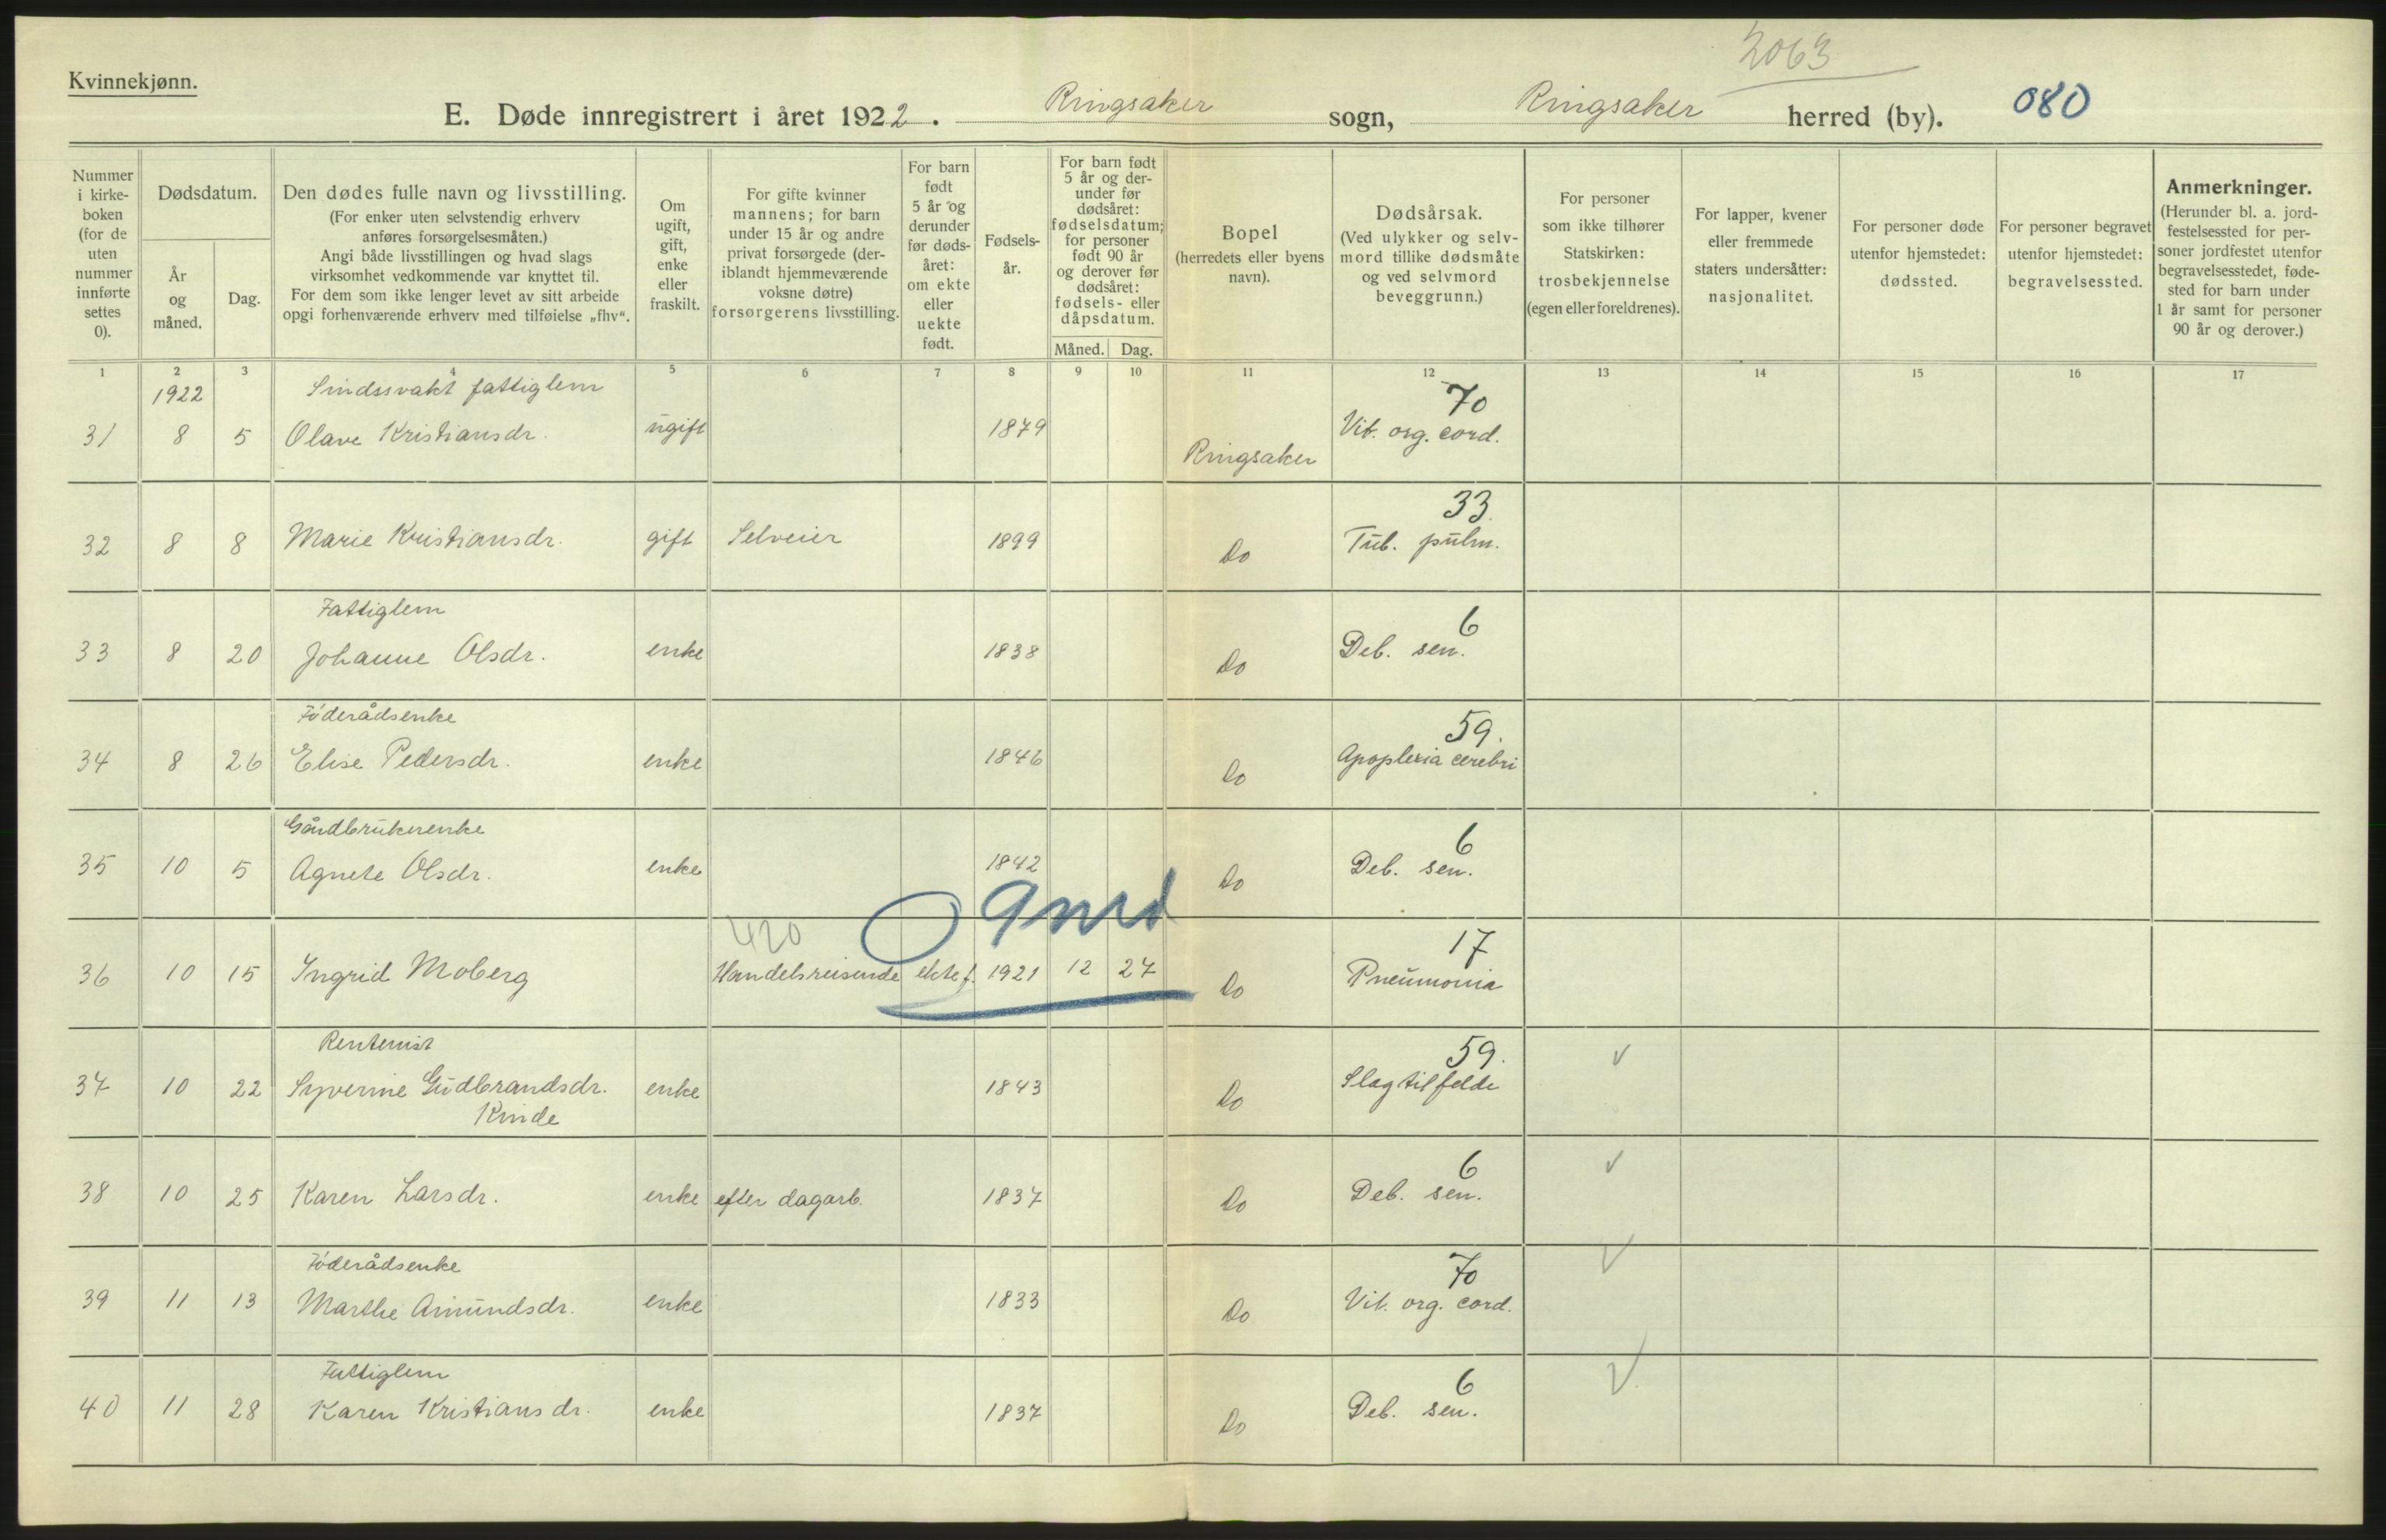 2063
Kvinnekjønn.
E. Døde innregistrert i året 1922. Ringsaker sogn, Ringsaker herred (by). 080
Nummer i kirke- boken (for de uten nummer innførte settes 0).
Dødsdatum.
År og måned.
Dag.
Den dødes fulle navn og livsstilling.
(For enker uten selvstendig erhverv
anføres forsørgelsesmåten.)
Angi både livsstillingen og hvad slags
virksomhet vedkommende var knyttet til.
For dem som ikke lenger levet av sitt arbeide
opgi forhenværende erhverv med tilføielse „fhv“.
Om ugift, gift, enke eller fraskilt.
For gifte kvinner
mannens; for barn
under 15 år og andre
privat forsørgede (der-
iblandt hjemmeværende
voksne døtre)
forsørgerens livsstilling.
For barn født 5 år og derunder før døds- året: om ekte eller uekte født.
Fødsels- år.
For barn født
5 år og der-
under før
dødsåret:
fødselsdatum;
for personer
født 90 år
og derover før
dødsåret:
fødsels- eller
dåpsdatum.
Måned. Dag.
Bopel
(herredets eller byens
navn).
Dødsårsak.
(Ved ulykker og selv-
mord tillike dødsmåte
og ved selvmord
beveggrunn.)
For personer
som ikke tilhører
Statskirken:
trosbekjennelse
(egen eller foreldrenes).
For lapper, kvener
eller fremmede
staters undersåtter:
nasjonalitet.
For personer døde
utenfor hjemstedet:
dødssted.
For personer begravet
utenfor hjemstedet:
begravelsessted.
Anmerkninger.
(Herunder bl. a. jord-
festelsessted for per-
soner jordfestet utenfor
begravelsesstedet, føde-
sted for barn under
1 år samt for personer
90 år og derover.)
1 2 3 4 5 6 7 8 9 10 11 12 13 14 15 16 17
1922 Sindssvakt fattiglem 70
31 8 5 Olave Kristiansdr. ugift 1879 Ringsaker Vit. org. cord.
33.
32 8 8 Marie Kristiansdr. gift Selveier 1899 Do Tub. pulm.
Fattiglem 6
33 8 20 Johanne Olsdr. enke 1838 Do Deb. sen.
Föderådsenke 59.
34 8 26 Elise Pedersdr. enke 1846 Do Apoplexia cerebri
Gårdbrukerenke 6
35 10 5 Agnete Olsdr. enke 1842 Do Deb. sen.
420 9 mrd 17
36 10 15 Ingrid Moberg Handelsreisende ekte f. 1921 12 27 Do Pneumonia
Rentenist 59. √
37 10 22 Syverine Gudbrandsdr. enke 1843 Do Slagtilfelde
Kinde
6 √
38 10 25 Karen Larsdr. enke efter dagarb. 1837 Do Deb. sen.
Föderådsenke 70 √
39 11 13 Marthe Amundsdr. enke 1833 Do Vit. org. cord.
Fattiglem 6 √
40 11 28 Karen Kristiansdr. enke 1837 Do Deb. sen.